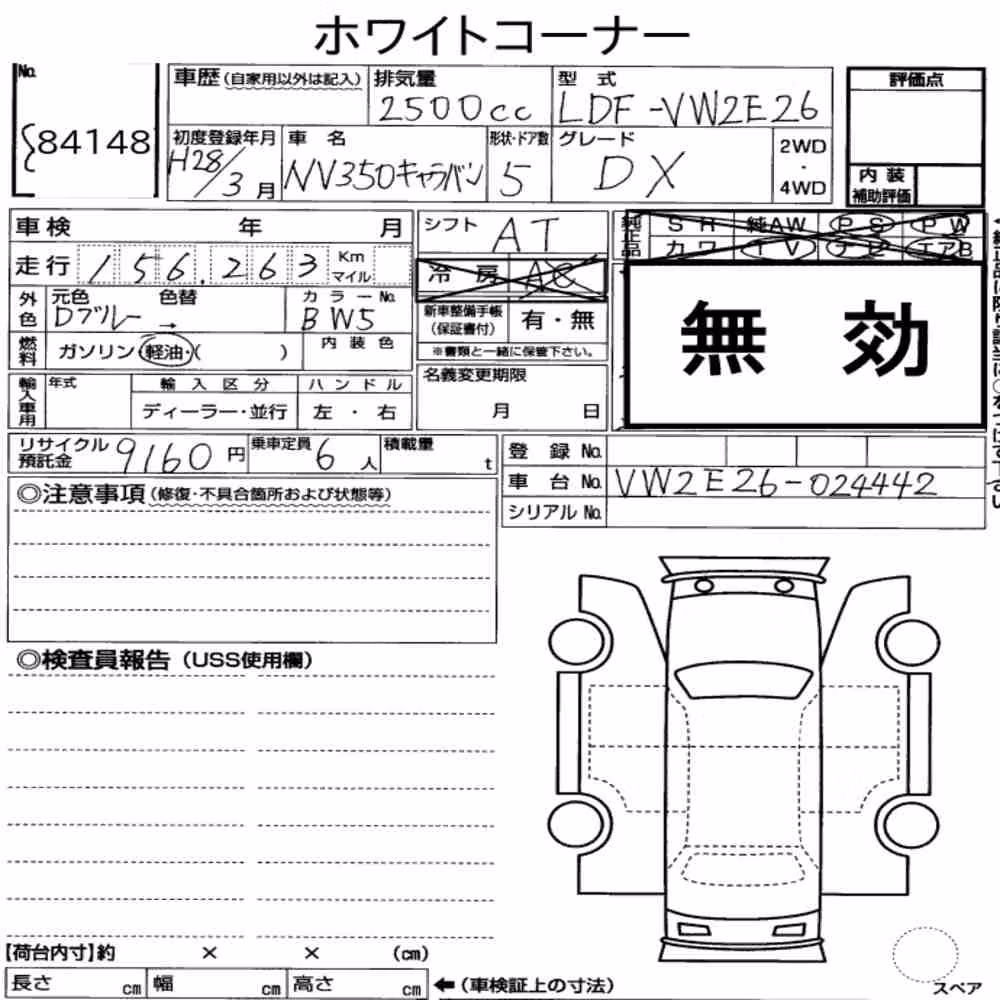 ホワイトコーナー
No.
84148
車歴 (自家用以外は記入)
排気量
2500cc
型 式
LDF-VW2E26
評価点
初度登録年月
H28/3 月
車 名
NV350キャラバン
形状・ドア数
5
グレード
DX
2WD
・
4WD
内 装
補助評価
車検 年 月
シフト
AT
純正品
S H 純AW P S P W
カ ワ T V ナビ エアB
走行 156,263 Km
マイル
冷 房 AC
無 効
外色
元色 色替
Dブルー →
カラーNo.
BW5
新車整備手帳
(保証書付)
有・無
燃料
ガソリン・軽油・( )
内 装 色
※書類と一緒に保管下さい。
輸入車用
年式
輸 入 区 分
ハ ン ド ル
ディーラー・並行
左 ・ 右
名義変更期限
月 日
リサイクル
預託金
9160 円
乗車定員
6 人
積載量
t
登 録 No.
車 台 No. VW2E26-024442
シリアル No.
◎注意事項 (修復・不具合箇所および状態等)
◎検査員報告 (USS使用欄)
【荷台内寸】約 × × (cm)
長さ cm 幅 cm 高さ cm
←(車検証上の寸法)
スペア